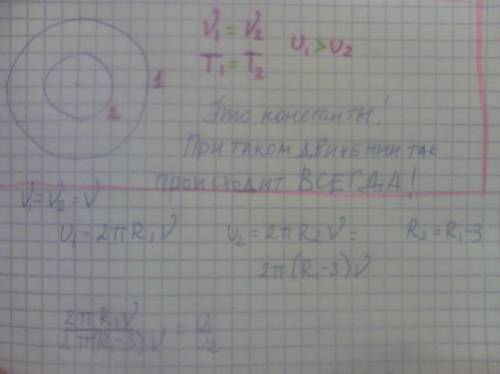 ν₁ = ν₂
T₁ = T₂
υ₁ > υ₂
1
2
Это константы!
При таком движении так
происходит ВСЕГДА!
ν₁ = ν₂ = ν
υ₁ = 2πR₁ν
υ₂ = 2πR₂ν =
2π(R₁-3)ν
R₂ = R₁-3
2πR₁ν / 2π(R₁-3)ν = υ₁ / υ₂